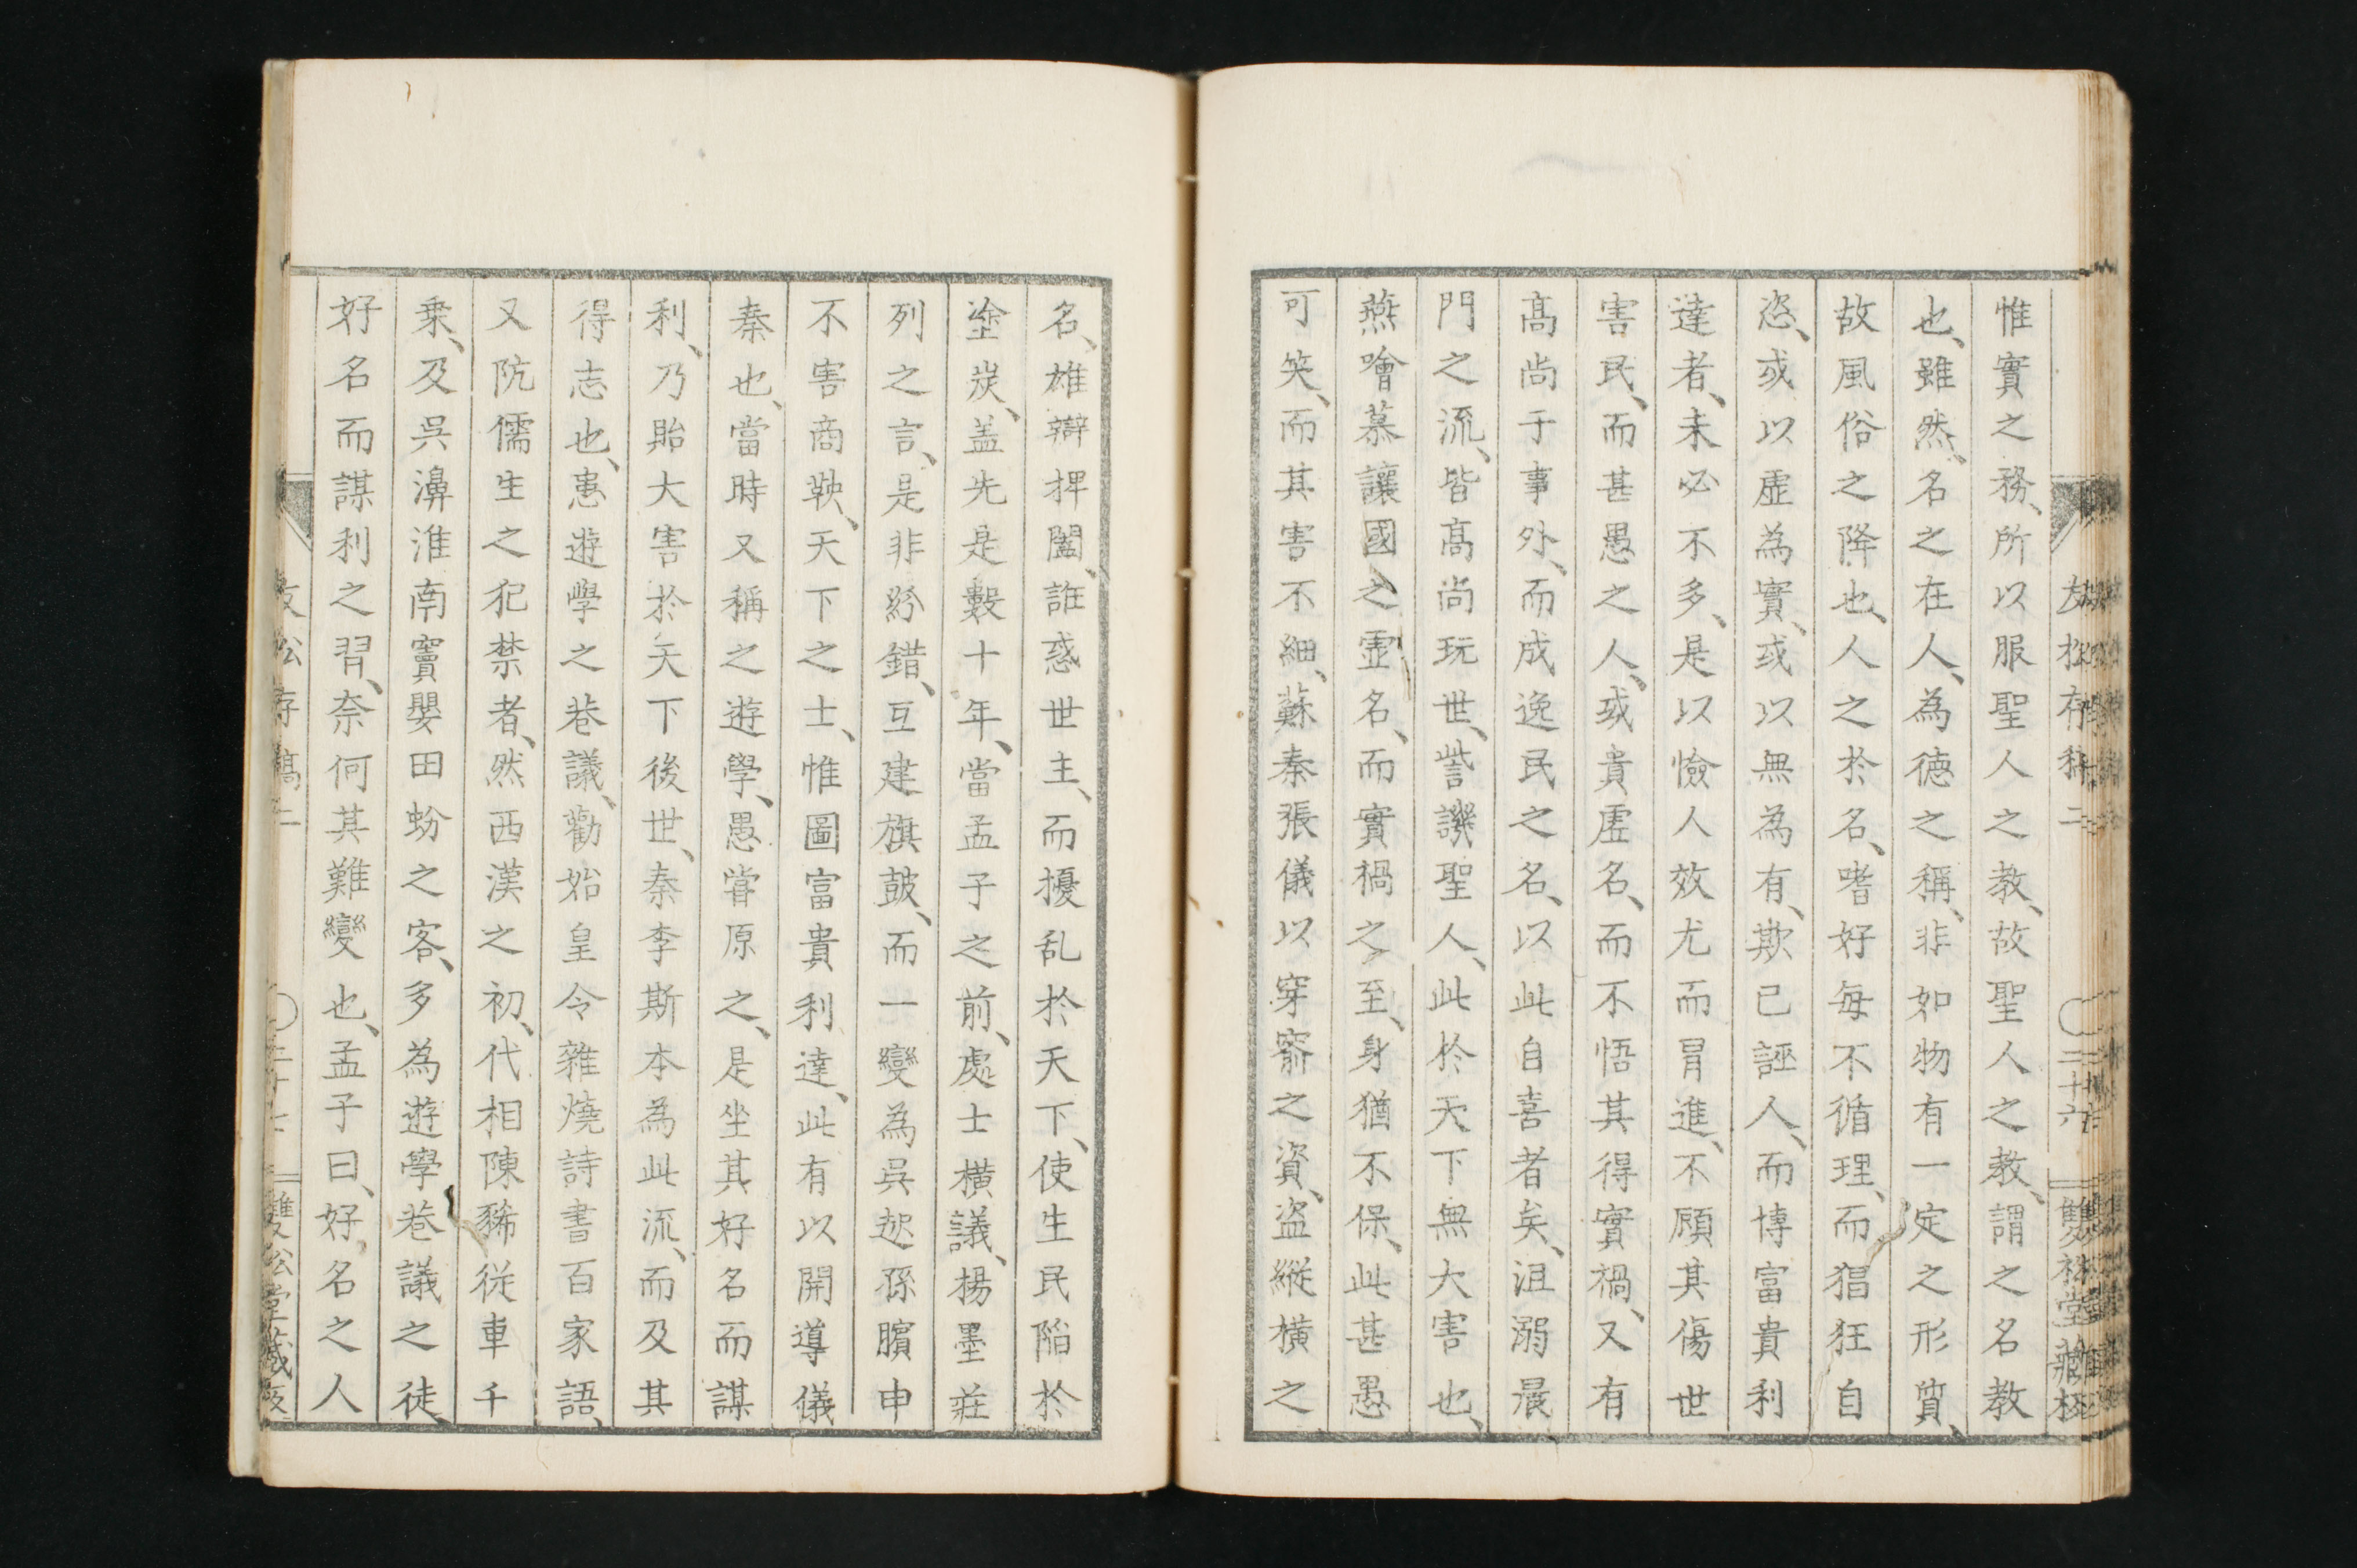 惟實之務、所以服聖人之教、故聖人之教、謂之名教
也、雖然、名之在人、為德之稱、非如物有一定之形質、
故風俗之降也、人之於名、嗜好每不循理、而猖狂自
恣、或以虛為實、或以無為有、欺己誣人、而博富貴利
達者、未必不多、是以憸人效尤而冒進、不顧其傷世
害民、而甚愚之人、或貴虛名、而不悟其得實禍、又有
高尚于事外、而成逸民之名、以此自喜者矣、沮溺晨
門之流、皆高尚玩世、訾譏聖人、此於天下無大害也、
燕噲慕讓國之虛名、而實禍之至、身猶不保、此甚愚
可笑、而其害不細、蘇秦張儀以穿窬之資、盜縱橫之
友松存稿二
二十六
雙松堂藏板
名、雄辯捭闔、誑惑世主、而擾乱於天下、使生民陷於
塗炭、盖先是數十年、當孟子之前、處士横議、楊墨莊
列之言、是非紛錯、互建旗鼓、而一變為吳起孫臏申
不害商鞅、天下之士、惟圖富貴利達、此有以開導儀
秦也、當時又稱之遊學、愚嘗原之、是坐其好名而謀
利、乃貽大害於天下後世、秦李斯本為此流、而及其
得志也、患遊學之巷議、勸始皇令雜燒詩書百家語、
又阬儒生之犯禁者、然西漢之初、代相陳豨従車千
乗、及吳濞淮南竇嬰田蚡之客、多為遊學巷議之徒、
好名而謀利之習、奈何其難變也、孟子曰、好名之人
友松存稿二
二十七
雙松堂藏板